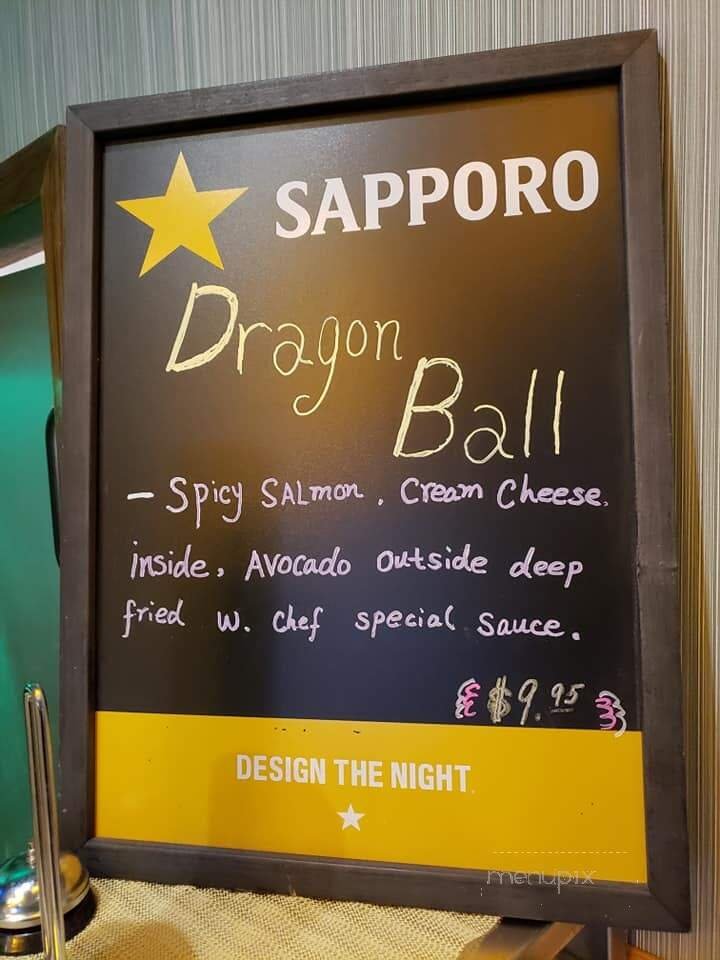 SAPPORO
Dragon
Ball
- Spicy SALmon. Cream Cheese.
inside, Avocado outside deep
fried w. chef special sauce.
$9.95
DESIGN THE NIGHT
menupix